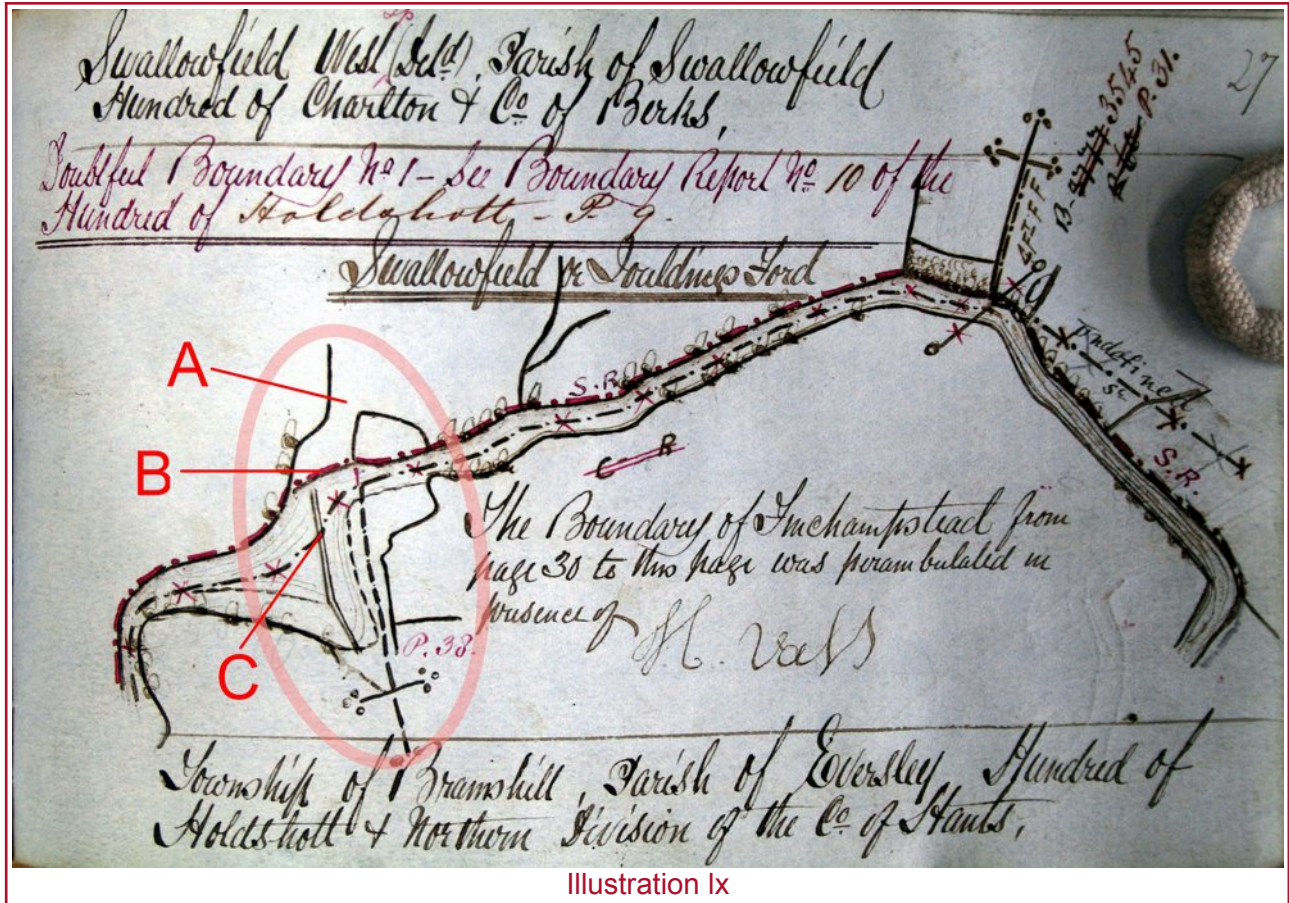 Swallowfield West (Detd), Parish of Swallowfield
Hundred of Charlton & Co of Berks,
27
3545
P. 31.
Doubtful Boundary No 1 – See Boundary Report No 10 of the
Hundred of Holdshott – P. 9.
Swallowfield or Fouldings Ford
4 Ft F F
Undefined
A
B
C
S.R.
S.R.
C R
The Boundary of Finchampstead from
page 30 to this page was perambulated in
presence of
P. 38.
Township of Bramshill, Parish of Eversley, Hundred of
Holdshott & Northern Division of the Co of Hants,
Illustration Ix